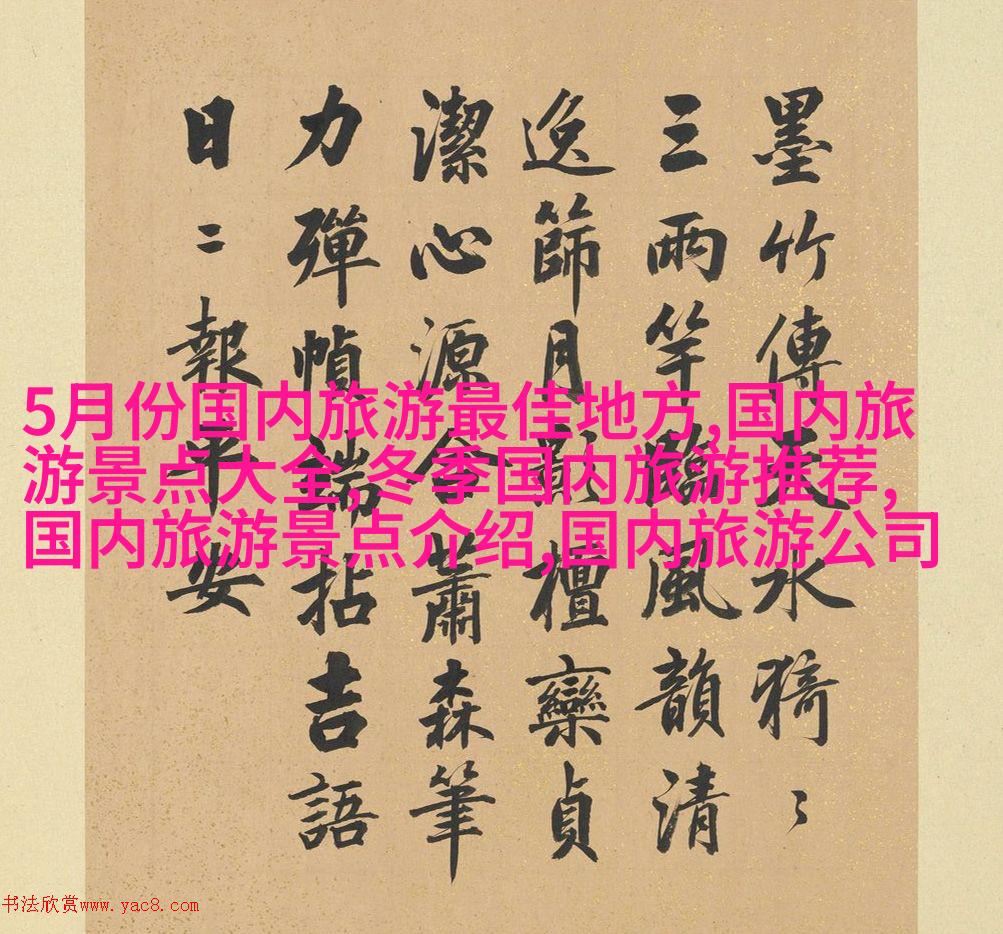 墨竹傳天水猗〻
三兩竿臨風韻清
逸篩月影檀欒貞
潔心源合蕭森筆
力彈幀端拈吉語
日二報平安
5月份国内旅游最佳地方,国内旅
游景点大全,冬季国内旅游推荐,
国内旅游景点介绍,国内旅游公司
书法欣赏www.yac8.com